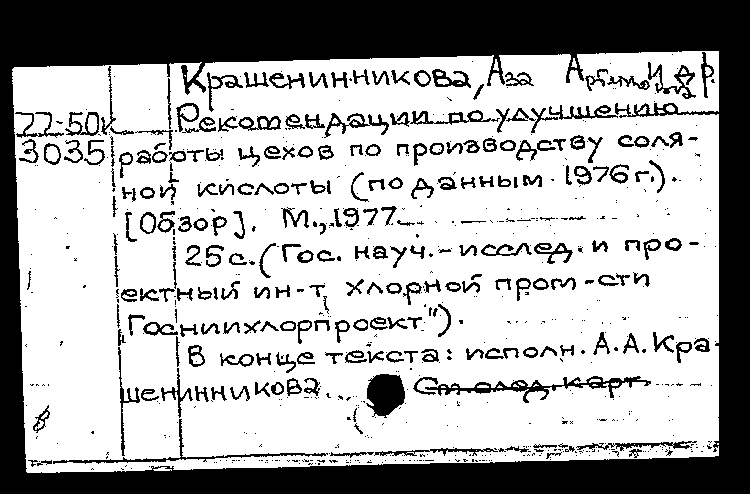 Крашенинникова, Аза и др.
77-50к Рекомендации по улучшению
3035 работы цехов по производству соля-
ной кислоты (по данным 1976 г.).
[Обзор]. М., 1977.
25 с. (Гос. науч.-исслед. и про-
ектный ин-т хлорной пром-сти
"Госниихлорпроект").
В конце текста: исполн. А.А. Кра-
шенинникова...
См. след. карт.